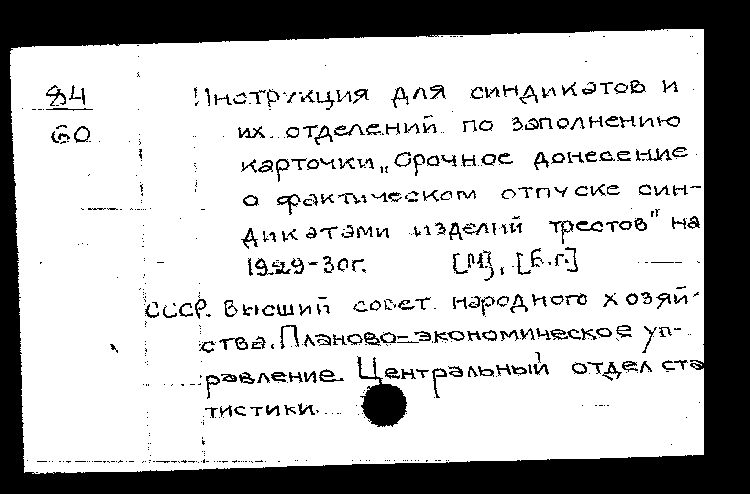 84
60
Инструкция для синдикатов и
их отделений по заполнению
карточки „Срочное донесение
о фактическом отпуске син-
дикатами изделий трестов" на
1929-30г. [М], [б.г.]
СССР. Высший совет народного хозяй-
ства. Планово-экономическое уп-
равление. Центральный отдел ста
тистики.